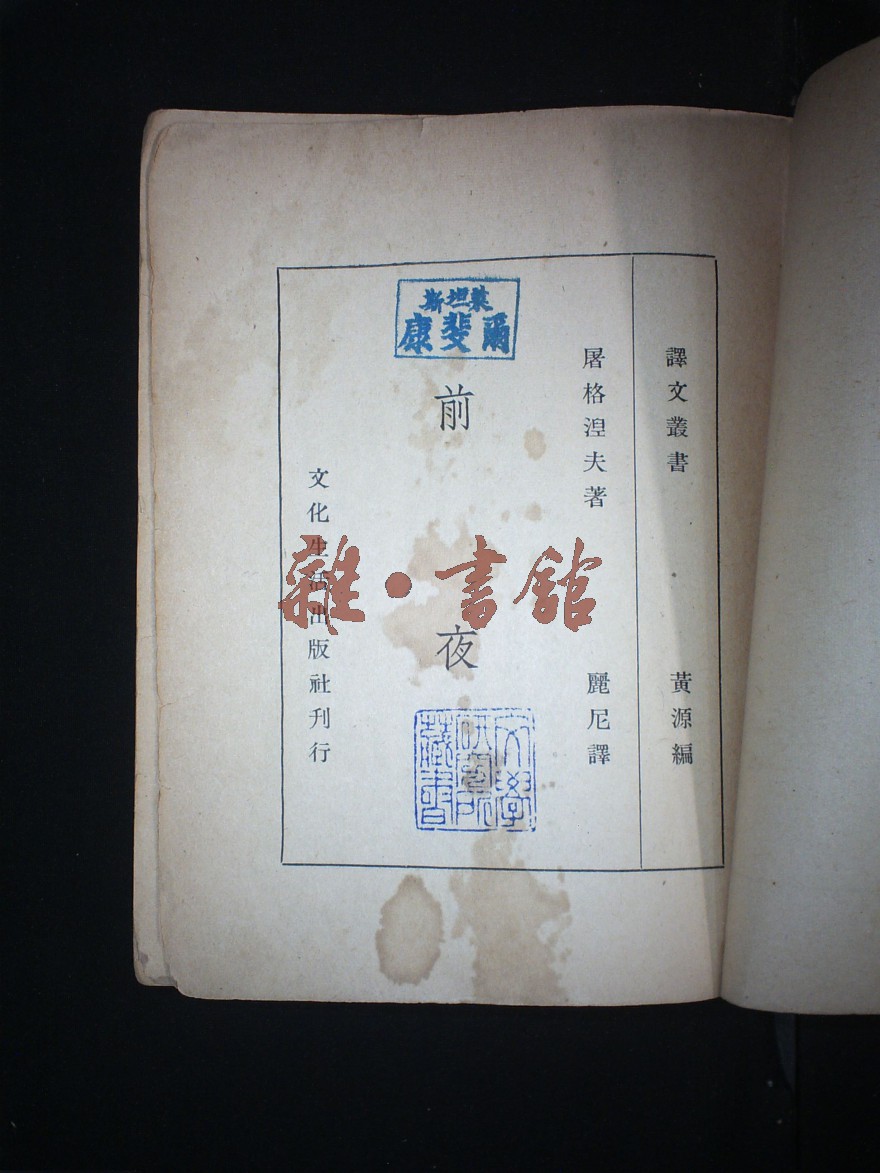 譯文叢書 黃源編
屠格涅夫著 麗尼譯
前夜
文化生活出版社刊行
康斐爾
文學
研究所
藏書
雜·書館